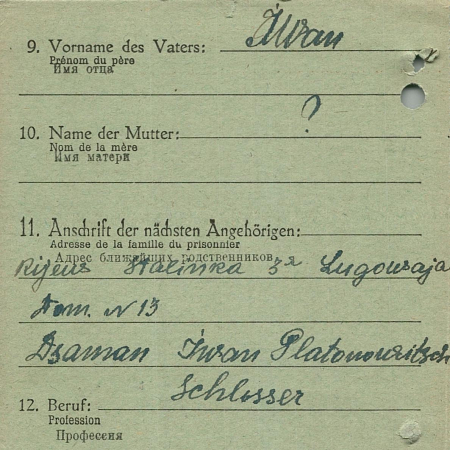 9. Vorname des Vaters: Iwan
Prénom du père
Имя отца
?
10. Name der Mutter:
Nom de la mère
Имя матери
11. Anschrift der nächsten Angehörigen:
Adresse de la famille du prisonnier
Адрес ближайших родственников
Kijews Stalinka 3a Lugowaja
Dom. N 13
Iwan Platonowitsch
Schlosser
12. Beruf:
Profession
Профессия